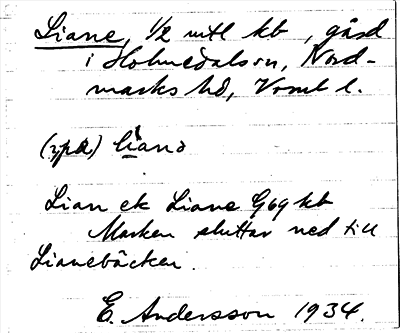 Liane, 1/2 mtl kb, gård
i Holmedals sn, Nord-
marks hd, Vrml l.
lìanə
Lian ek Liane G69 kb
Marken sluttar ned till
Lianebäcken.
E. Andersson 1934.